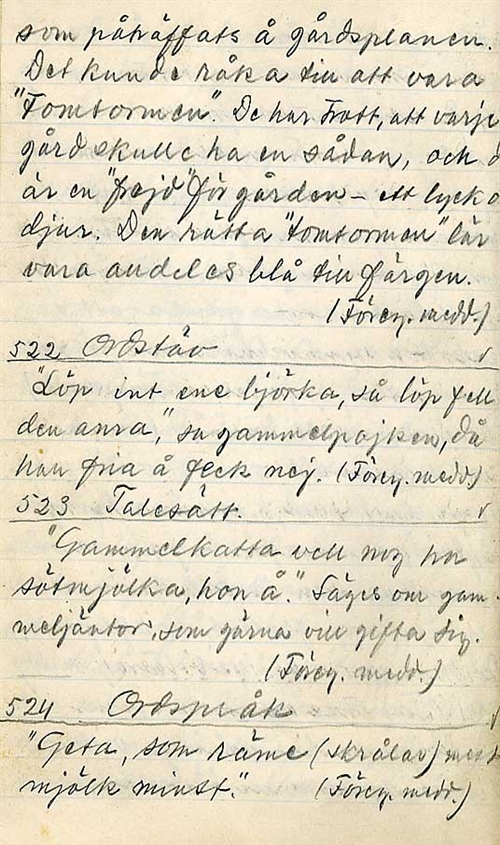 som påträffats å gårdsplanen.
Det kunde råka till att vara
"Tomtormen". De har trott, att varje
gård skulle ha en sådan, och d
är en "frejd" för gården - ett lycko
djur. Den rätta "tomtormen" lär
vara andeles blå till färgen.
(Föreg. medd.)
522 Ordstäv
"Löp int ene björka, så löp fell
den anra," sa gammelpojken, då
han fria å feck nej. (Föreg. medd)
523 Talesätt.
"Gammelkatta vell nog ha
sötmjölka, hon å." Säges om gam-
meljäntor, som gärna vill gifta sig.
(Föreg. medd.)
524 Ordspråk
"Geta, som räme (skrålar) mest
mjölk minst". (Föreg. medd.)